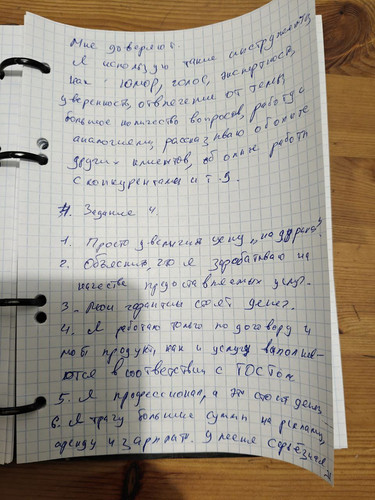 Мне доверяют.
Я использую такие инструменты,
как: юмор, голос, экспертность,
уверенность, отвлечение от темы,
большое количество вопросов, работу с
аналогиями, рассказываю об опыте
других клиентов, об опыте работы
с конкурентами и т.д.
Задание 4.
1. Просто увеличить цену "на дурака".
2. Объяснить, что я зарабатываю на
качестве предоставляемых услуг.
3. Мои гарантии стоят денег.
4. Я работаю только по договору и
мои продукты, как и услуги выполня-
ются в соответствии с ГОСТом.
5. Я профессионал, а это стоит денег.
6. Я трачу большие суммы на рекламу,
аренду и зарплаты. У меня серьёзная